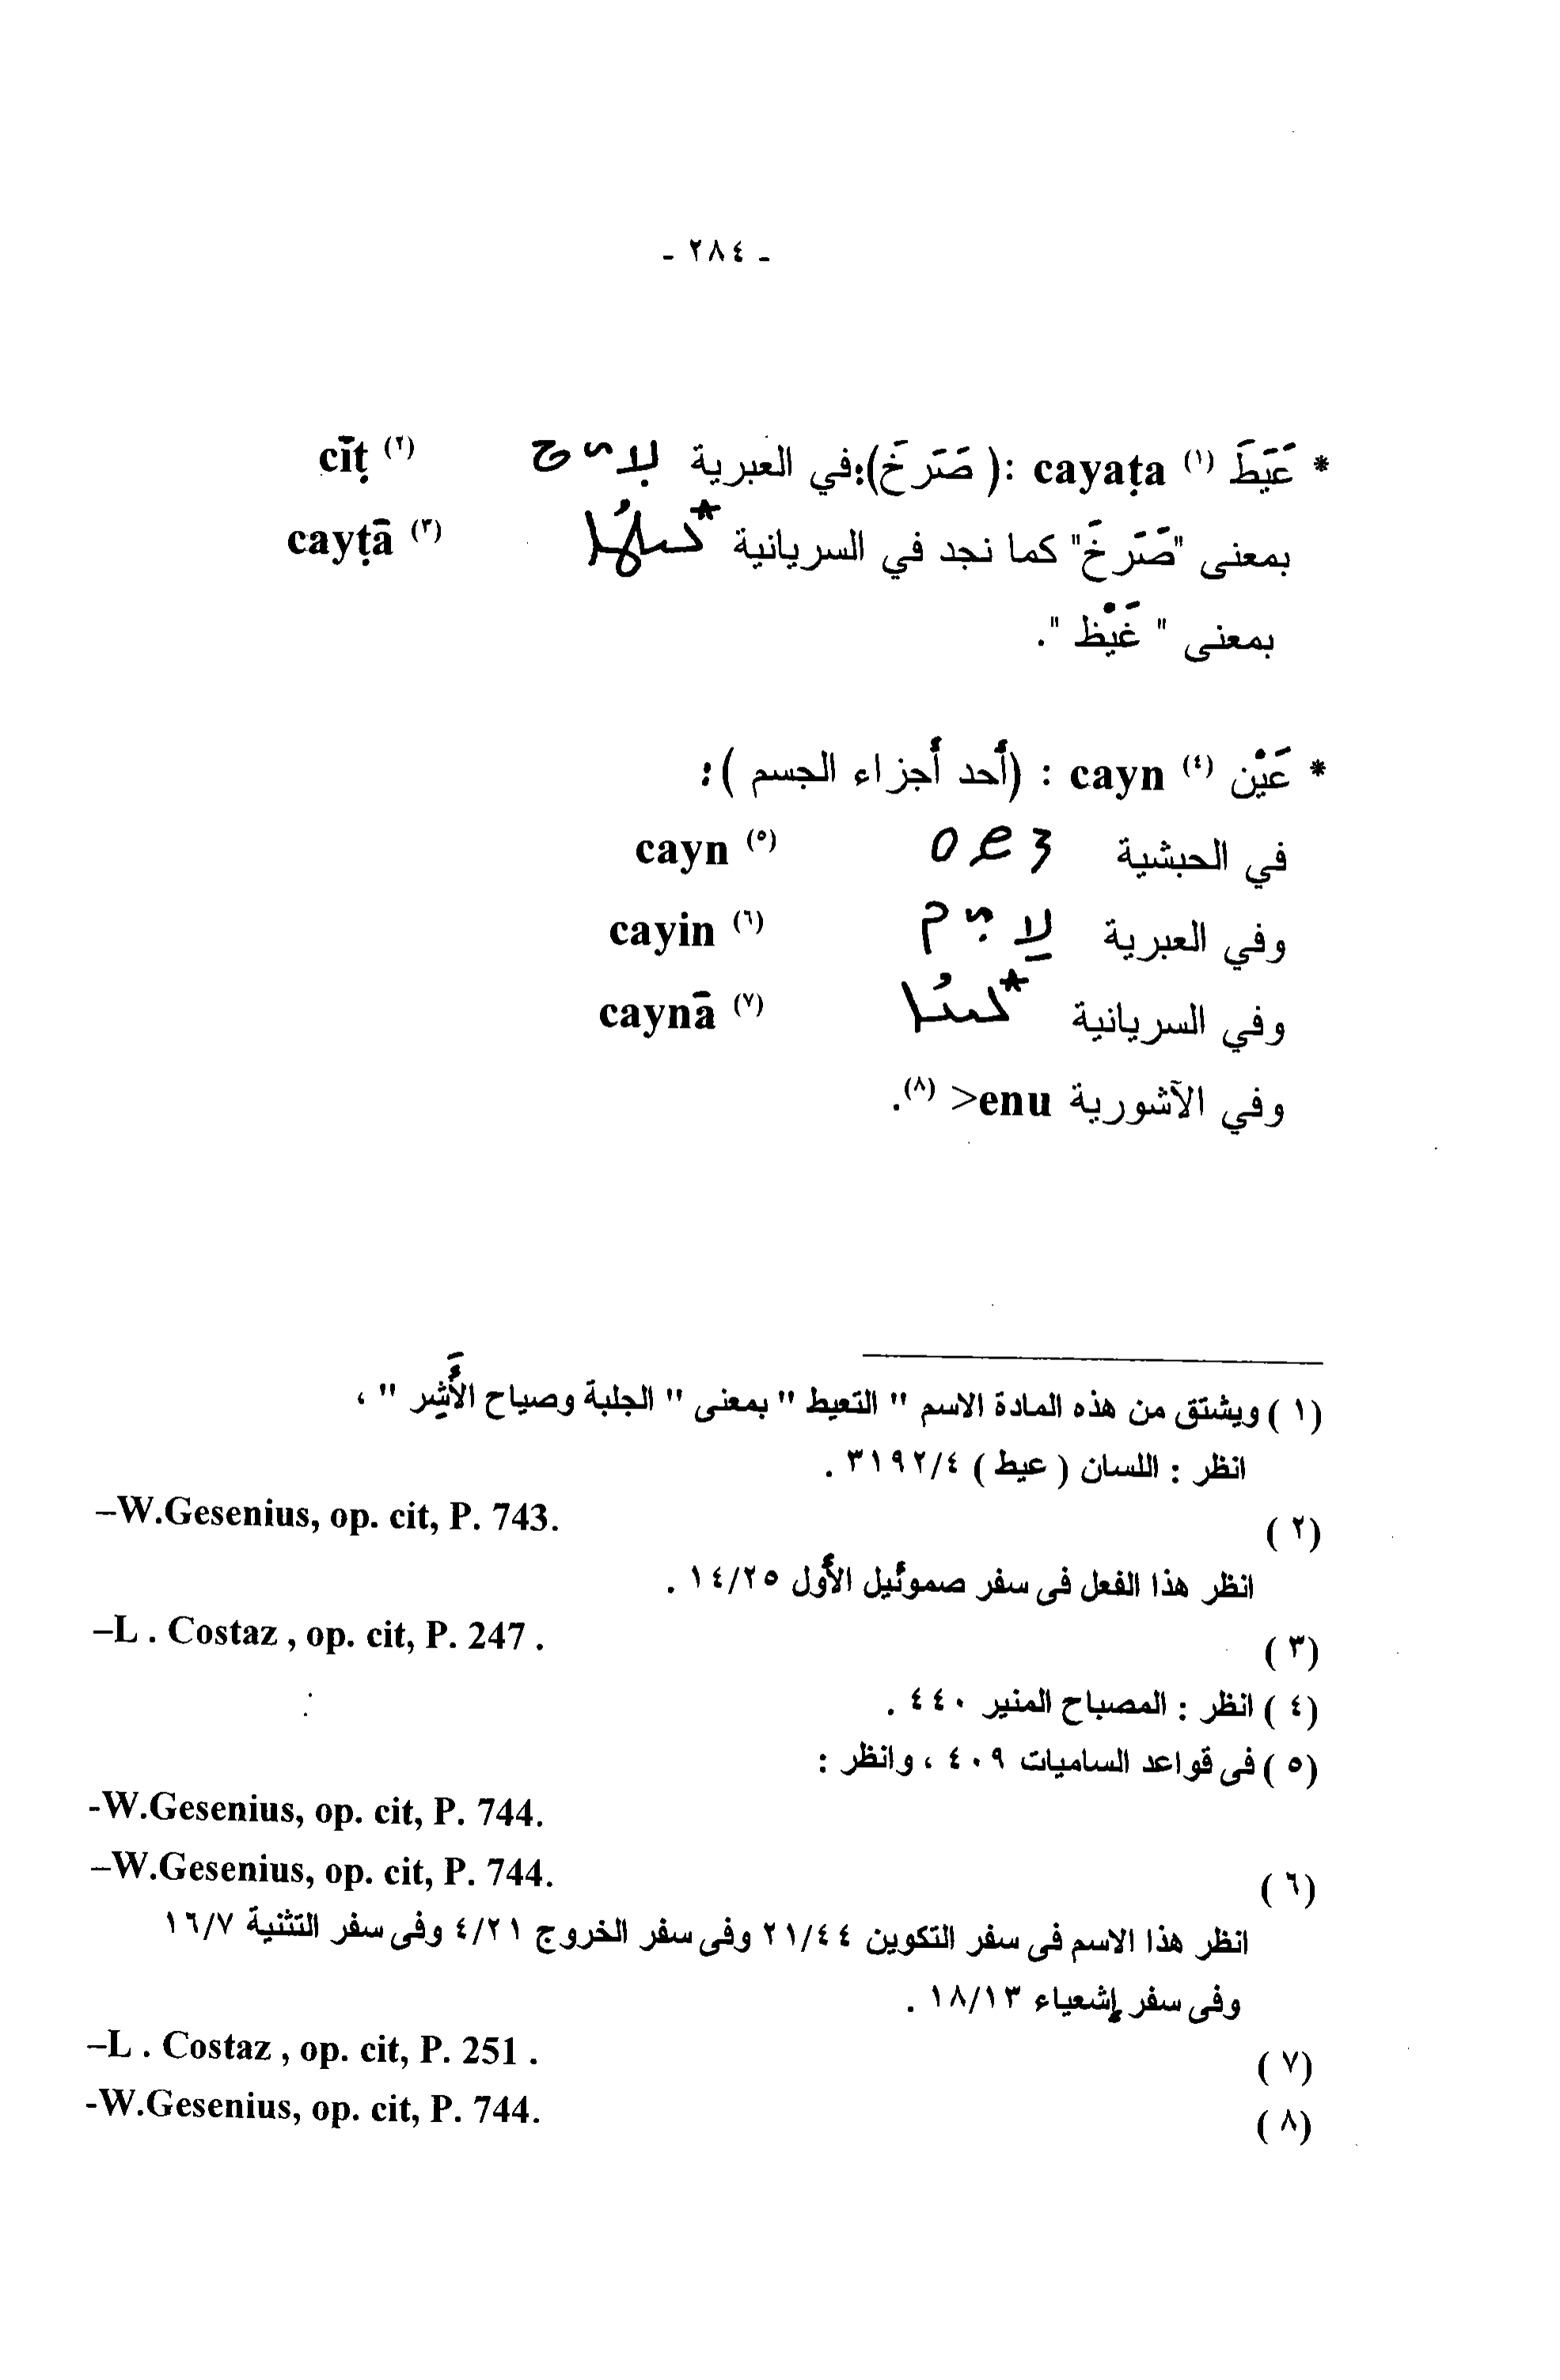 - ٢٨٤ -
* عَيَطَ (١) cayaṭa :( صَرَخَ)؛في العبرية עִיט cīṭ (٢)
بمعنى "صَرَخَ" كما نجد في السريانية *ܥܝܛܳܐ cayṭā (٣)
بمعنى " غَيْظ ".
* عَيْن (٤) cayn : (أحد أجزاء الجسم ):
في الحبشية ዐይን cayn (٥)
وفي العبرية עַיִן cayin (٦)
وفي السريانية *ܥܝܢܳܐ caynā (٧)
وفي الآشورية enu< (٨).
(١ ) ويشتق من هذه المادة الاسم " التعيط " بمعنى " الجلبة وصياح الأَشِر " ،
انظر : اللسان ( عيط ) ٣١٩٢/٤ .
(٢ ) –W.Gesenius, op. cit, P. 743.
انظر هذا الفعل فى سفر صموئيل الأول ١٤/٢٥ .
(٣ ) –L . Costaz , op. cit, P. 247 .
(٤ ) انظر : المصباح المنير ٤٤٠ .
(٥ ) فى قواعد الساميات ٤٠٩ ، وانظر :
-W.Gesenius, op. cit, P. 744.
(٦ ) –W.Gesenius, op. cit, P. 744.
انظر هذا الاسم فى سفر التكوين ٢١/٤٤ وفى سفر الخروج ٤/٢١ وفى سفر التثنية ١٦/٧
وفى سفر إشعياء ١٨/١٣ .
(٧ ) –L . Costaz , op. cit, P. 251 .
(٨ ) -W.Gesenius, op. cit, P. 744.